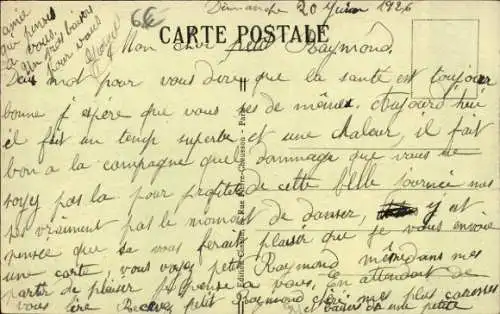 Dimanche 20 Juin 1926
6€
CARTE POSTALE
amie
qui pense
a vous.
un gros baiser
pour vous
Mon cher petit Raymond.
Deux mot pour vous dire que la santé est toujour
bonne j'éspére que vous ètes de mêmes. Aujourd'hui
il fait un temp superbe et une chaleur, il fait
bon a la campagne quel dommage que vous ne
soyez pas la pour profiter de cette belle journée mes
pas vraiment pas le moment de danser, j'y est
pensée que sa vous ferait plaisir que je vous envoie
une carte, vous voyez petit Raymond même dans mes
partir de plaisir je pense a vous. En attendant de
vous lire Recevez petit Raymond chéri mes plus caresses
et baiser de une petite